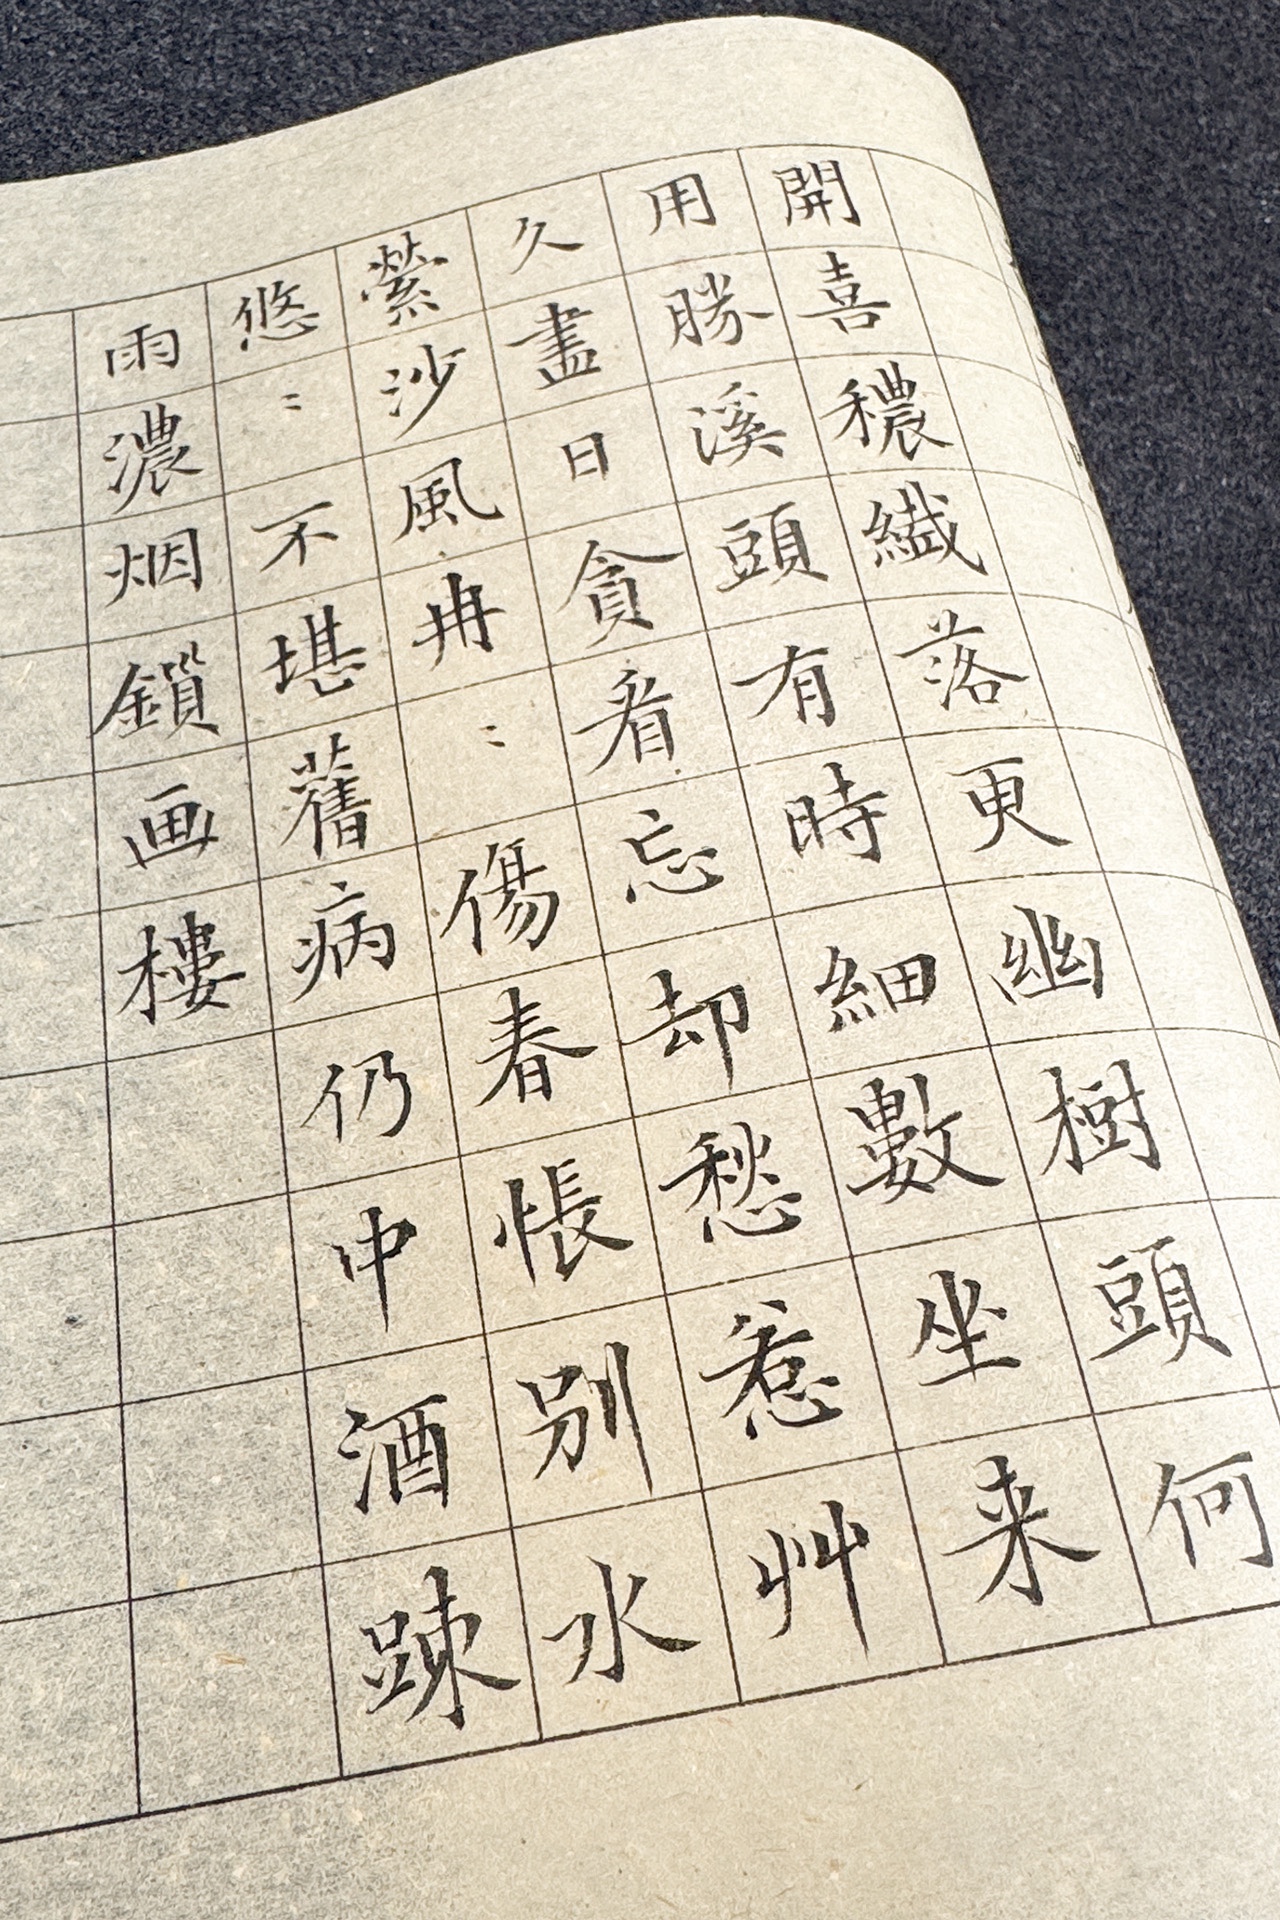 開喜穠纖落更幽樹頭何
用勝溪頭有時細數坐来
久盡日貪看忘却愁惹艸
縈沙風冉〻傷春悵別水
悠〻不堪舊病仍中酒踈
雨濃烟鎖画樓